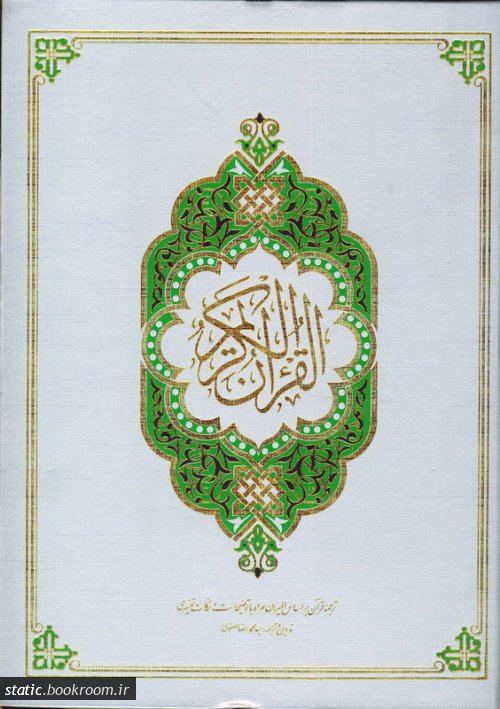 القرآن الكريم
ترجمه قرآن بر اساس المیزان همراه با توضیحات و نکات تفسیری
تدوین و ترجمه: سید محمد رضا صفوی
static.bookroom.ir